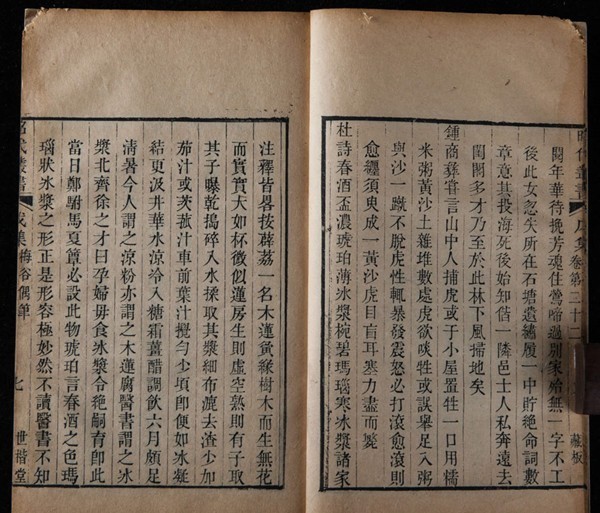 閱年華待挽芳魂住鶯啼過別家始無一字不工
後此女忽失所在石塘遺繡履一中貯絶命詞數
章意其投海死後始知偕一隣邑士人私奔遠去
閨閣多才乃至於此林下風掃地矣
鍾商彝嘗言山中人捕虎或于小屋置牲一口用糯
米粥黄沙土雜堆數處虎欲啖牲或誤舉足入粥
與沙一蹴不脫虎性輒暴發震怒必打滾愈滾則
愈纏須臾成一黄沙虎目盲耳塞力盡而斃
杜詩春酒盃濃琥珀薄冰漿椀碧瑪瑙寒冰漿諸家
卷第三十二
藏板
注釋皆畧按薜荔一名木蓮夤緣樹木而生無花
而實實大如杯微似蓮房生則虛空熟則有子取
其子曝乾搗碎入水揉取其漿細布漉去渣少加
茄汁或茨菰汁車前葉汁攪勻少頃即便如冰凝
結更汲井華水涼冷入糖霜薑醋調飲六月頗足
清暑今人謂之涼粉亦謂之木蓮腐醫書謂之冰
漿北齊徐之才曰孕婦毋食冰漿令絶嗣育即此
當日鄭駙馬夏簟必設此物琥珀言春酒之色瑪
瑙狀冰漿之形正是形容極妙然不讀醫書不知
昭代叢書
戊集梅谷偶筆
七
世楷堂